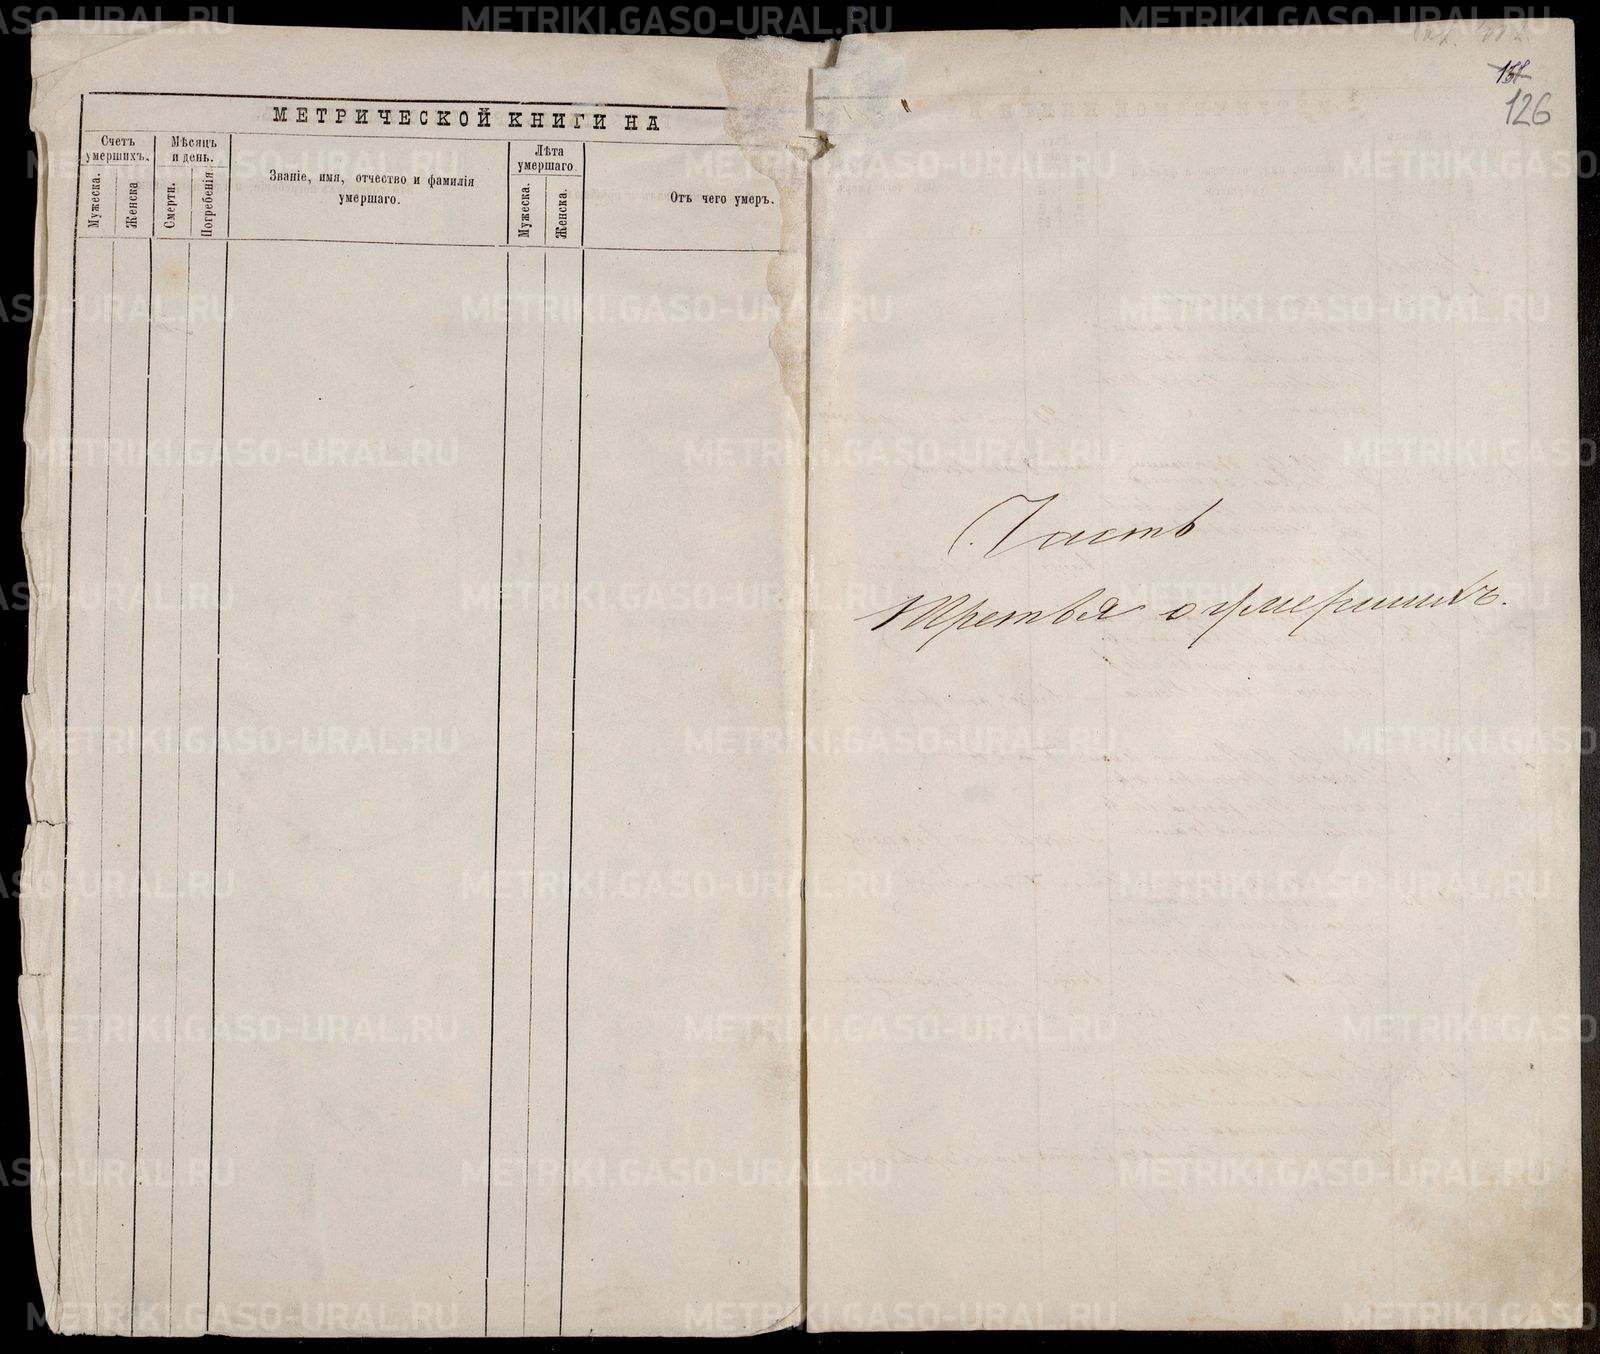 МЕТРИЧЕСКОЙ КНИГИ НА
Счетъ умершихъ.
Мужеска.
Женска
Мѣсяцъ и день.
Смерти.
Погребенія.
Званіе, имя, отчество и фамилія
умершаго.
Лѣта умершаго.
Мужеска.
Женска.
Отъ чего умеръ.
126
Часть
третья о умершихъ.
METRIKI.GASO-URAL.RU